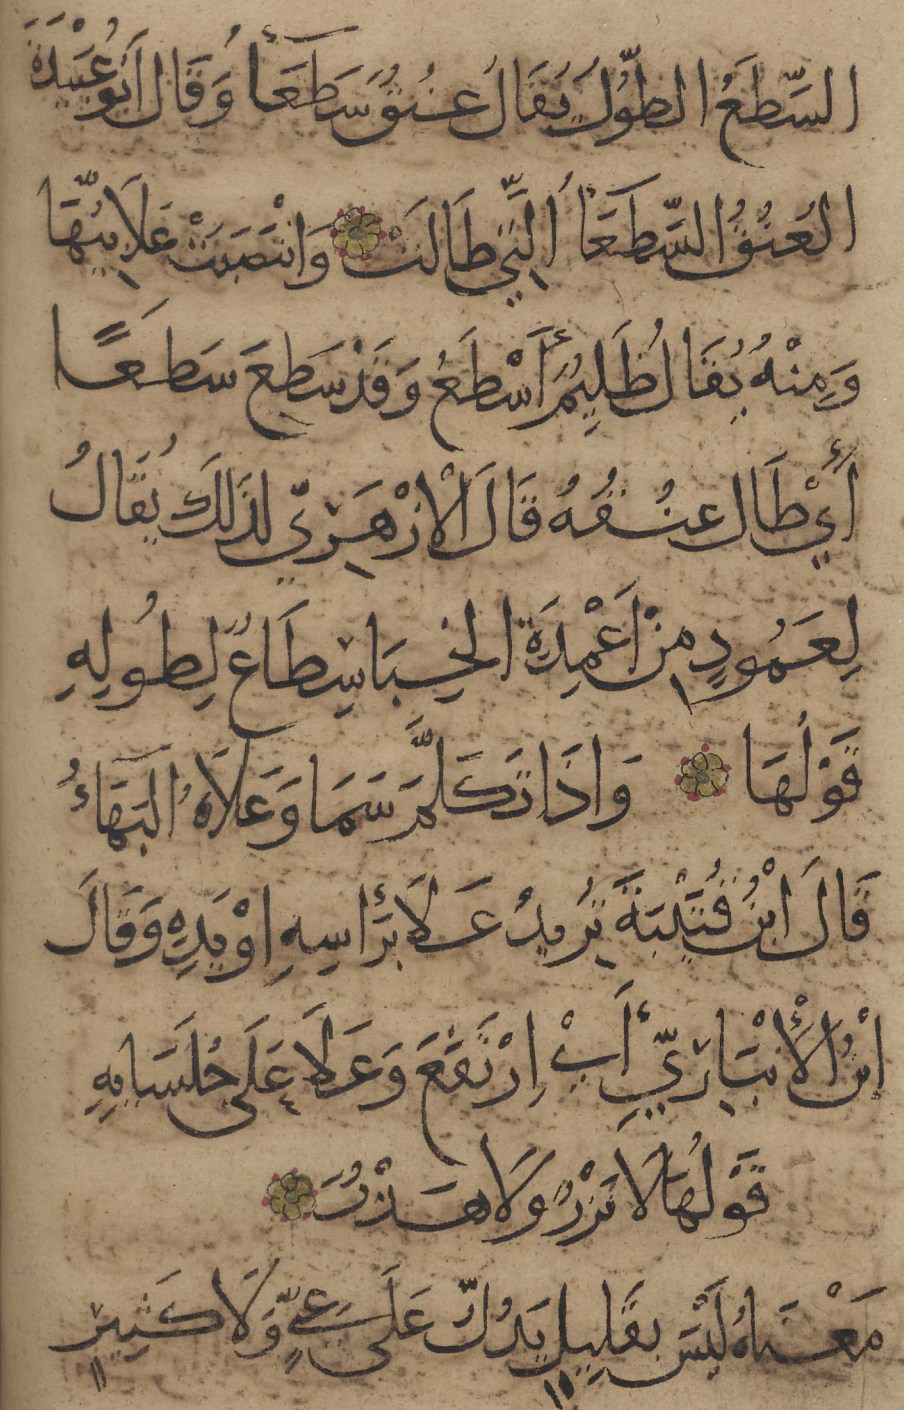 السَّطَعُ الطُّولُ يُقَالُ عُنُقٌ سَطَعَاُ وَقَالَ اَبُو عُبَيْدَةَ
العُنُقُ السَّطَعَاُ الَّتِي طَالَتْ وَانْتَصَبَتْ عَلَابِيُّهَا
وَمِنْهُ يُقَالُ ظَلِيمٌ أَسْطَعُ وَقَدْ سَطِعَ سَطَعًا
أَيْ طَالَ عُنُقُهُ قَالَ الْازْهَرِيّ لذَلِكَ يُقَالُ
لِعَمُودٍ مِنْ اَعْمِدَةِ الخِبَا سِطَاعٌ لِطُولِهِ
قَوْلُهَا وَاذَا تَكَلَّمَ سَمَا وَعَلَاهُ البَهَآءُ
قَالَ ابْنُ قُتَيْبَةَ تُرِيدُ عَلَا بَرَأسِهِ اوْ يَدِهِ وَقَالَ
ابْنُ الْأَنْبَارِيّ أَيْ اِرْتَفَعَ وَعَلَا عَلَى جُلَسَايهِ
قَوْلُهَا لَا نَزْرٌ وَلَا هَذْرٌ
مَعْنَاهُ لَيْسَ بقَلِيلٍ يَدُلّ عَلَى عِيٍّ وَلَا كَثِيرٍ